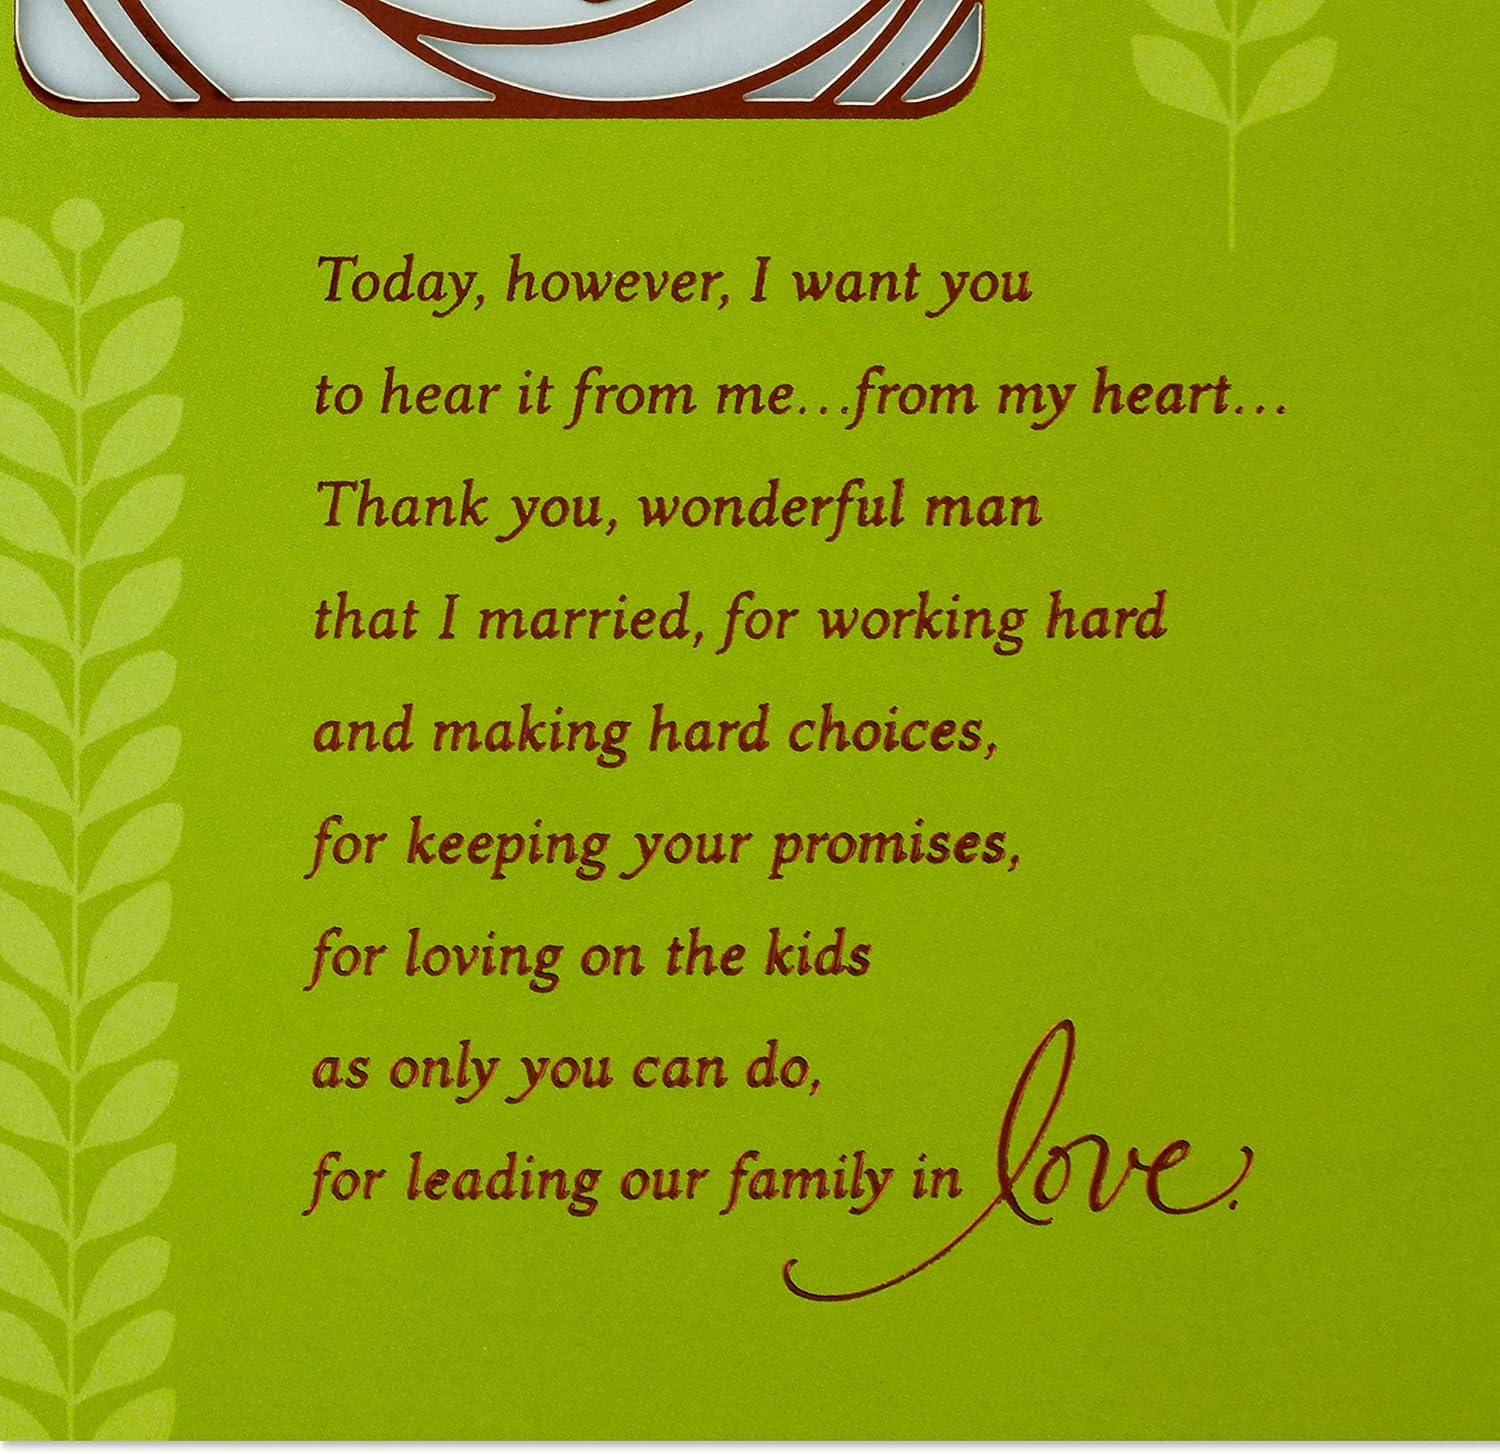 Today, however, I want you
to hear it from me...from my heart...
Thank you, wonderful man
that I married, for working hard
and making hard choices,
for keeping your promises,
for loving on the kids
as only you can do,
for leading our family in love.